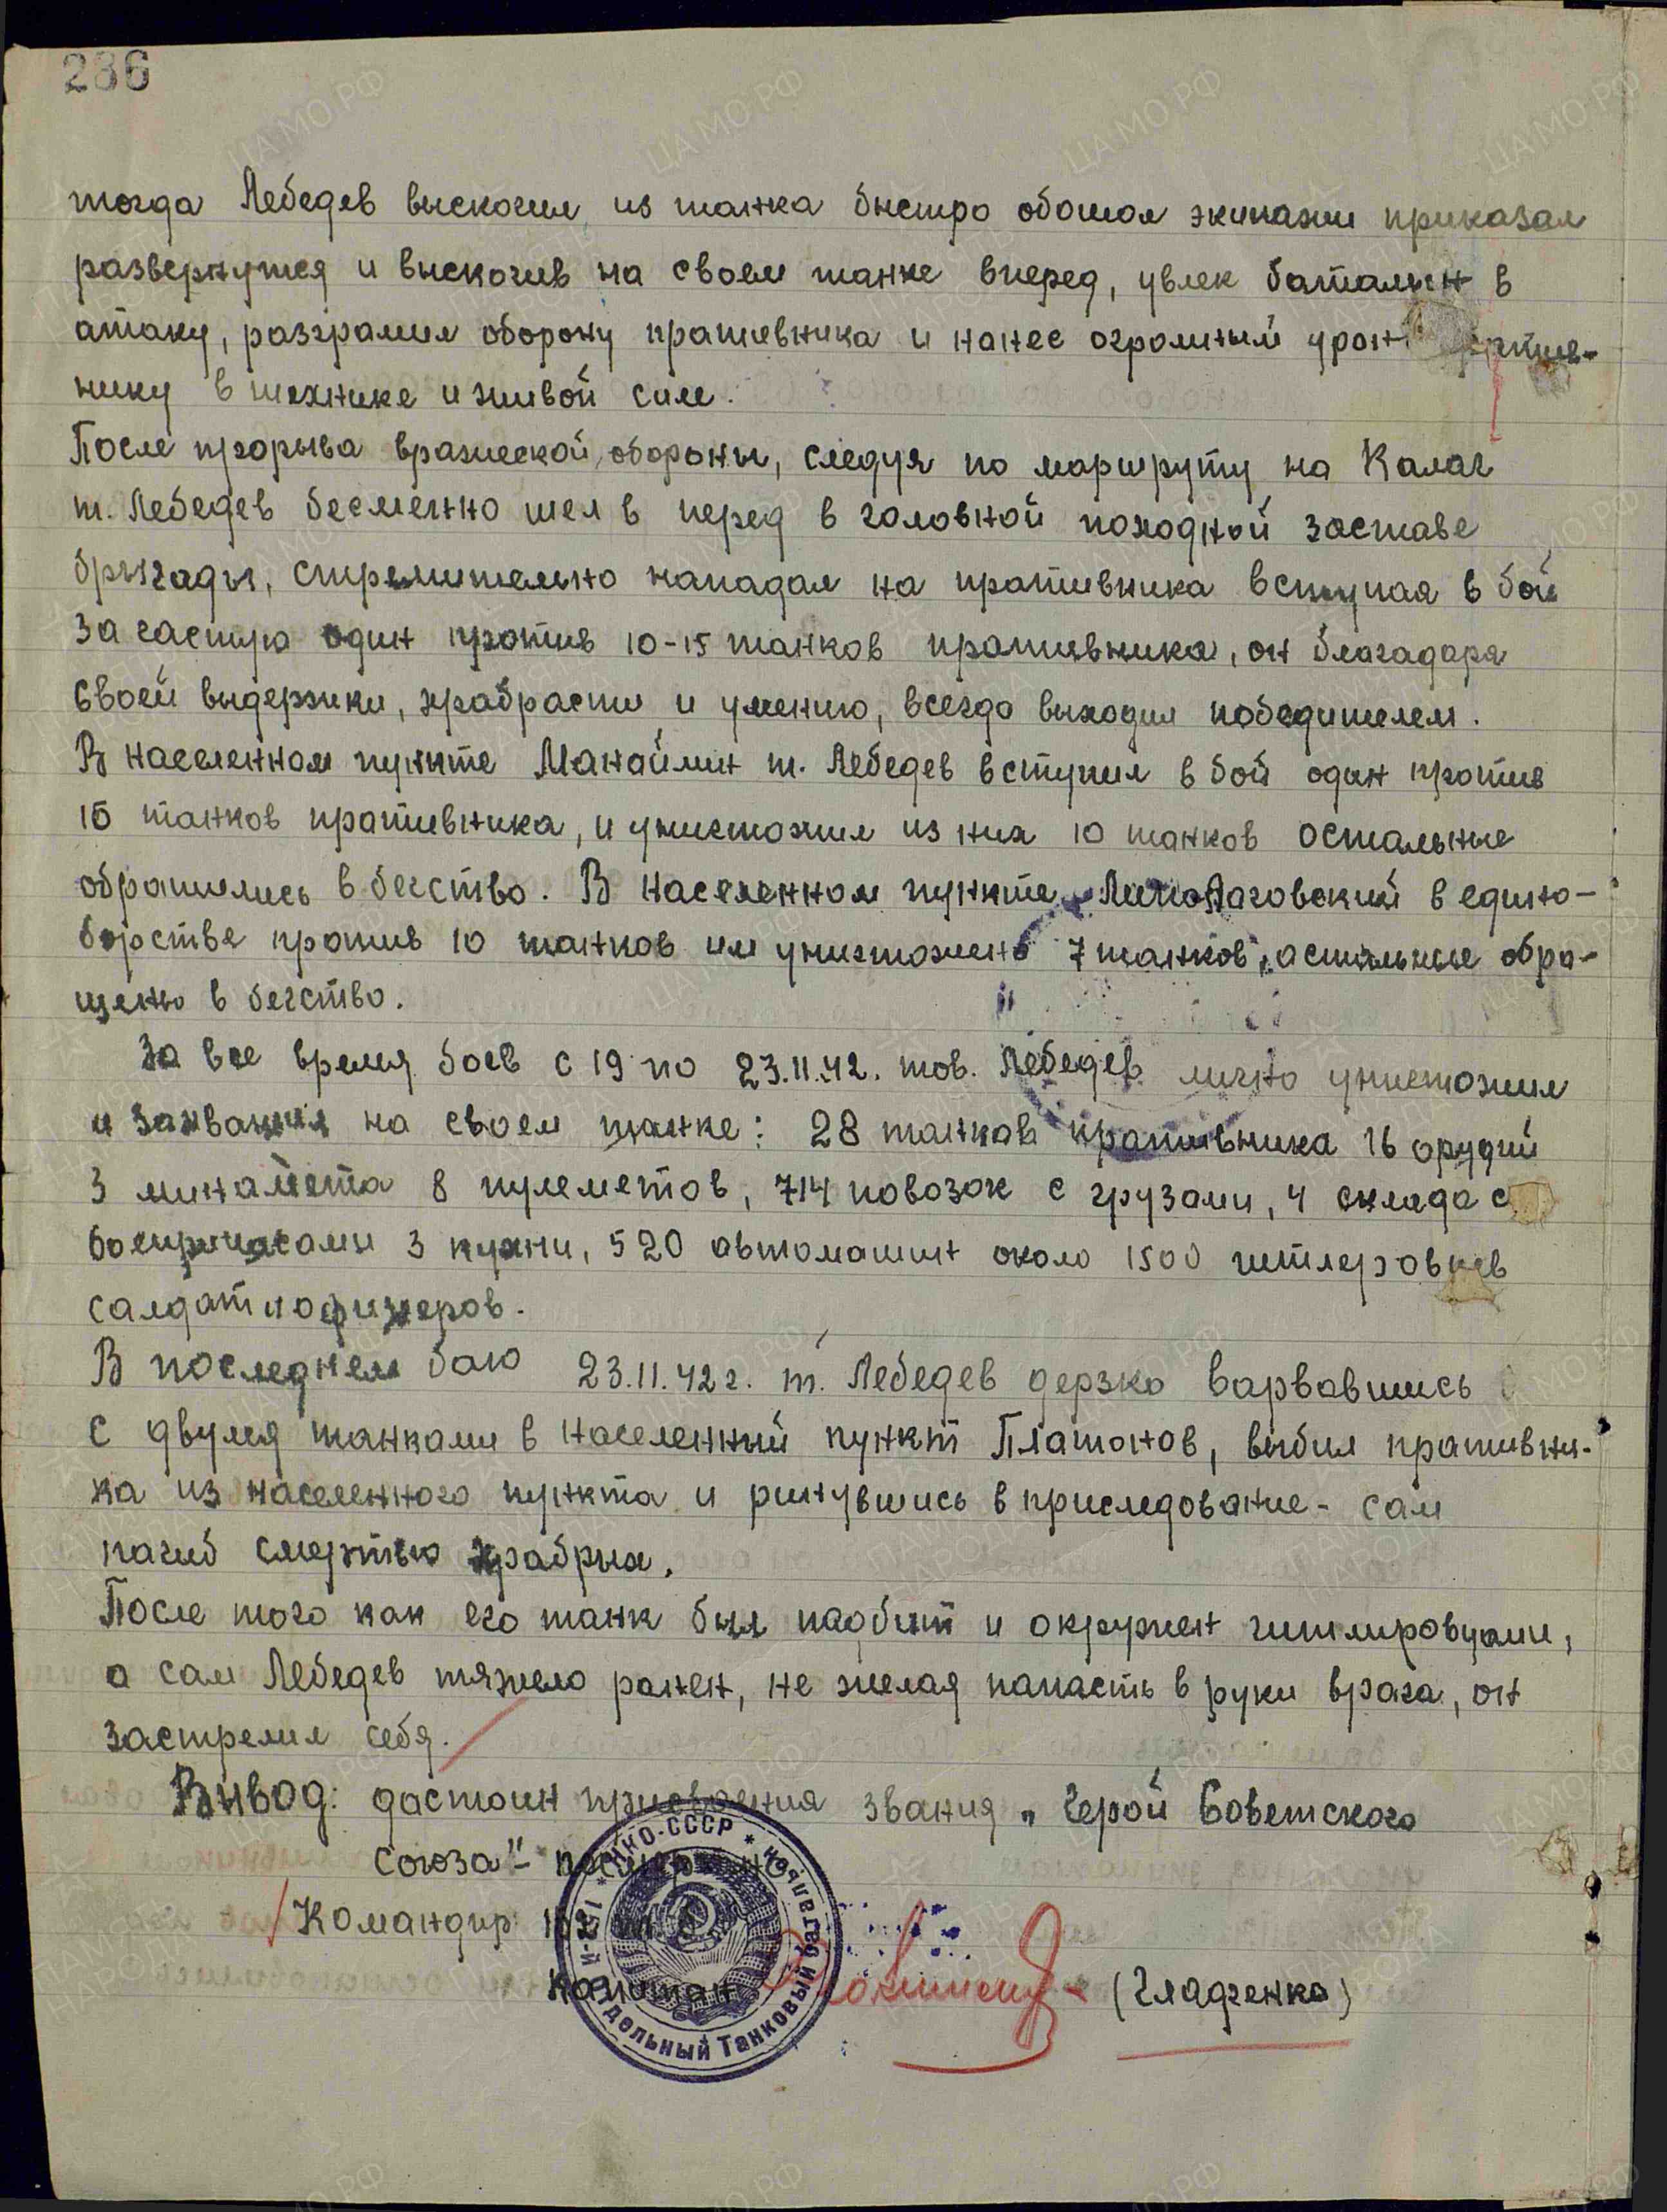 236
тогда Лебедев выскочил из танка быстро обошол экипажи приказал
развернутся и выскочив на своем танке вперед, увлек батальен в
атаку, разграмил оборону пративника и нанес огромный урон
нику в технике и живой силе.
После прорыва вражеской обороны, следуя по маршруту на Калач
т. Лебедев бесменно шел в перед в головной походной заставе
бригады, стремительно нападал на пративника вступая в бой
За састую один против 10-15 танков пративника, он благадаря
своей выдержки, храбрасти и умению, всегда выходил победителем.
В населенном пункте Манойлин т. Лебедев вступил в бой один против
15 танков пративника, и уничтожил из них 10 танков остальные
обратились в бегство. В населенном пункте в едино-
борстве против 10 танков им уничтожено 7 танков, астальные обра-
щены в бегство.
За все время боев с 19 по 23.11.42. тов. Лебедев лично уничтожил
и захватил на своем танке: 28 танков пративника 16 орудий
3 минамета 8 пулеметов, 714 повозок с грузами, 4 склада с
боеприпасами 3 кухни, 520 автомашин около 1500 гитлеровцев
салдат и офицеров.
В последнем баю 23.11.42 г. т. Лебедев дерзко варвавшись
с двумя танками в населенный пункт Платонов, выбил пративни-
ка из населенного пункта и ринувшись в приследование - сам
пагиб смертью храбрых.
После того как его танк был падбит и окружен гитлировцами,
а сам Лебедев тяжело ранен, не желая папасть в руки врага, он
застрелил себя.
Вывод: дастоин присвоения звания „Герой Советского
Союза" - посмертно
Командир
капитан (Гладченко)
НКО-СССР * Отдельный Танковый баталион